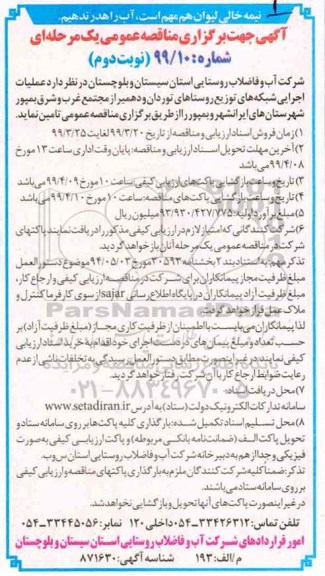 نیمه خالی لیوان هم مهم است، آب را هدر ندهیم.
آگهی جهت برگزاری مناقصه عمومی یک مرحله ای
شماره: ۹۹/۱۰ (نوبت دوم)
شرکت آب و فاضلاب روستایی استان سیستان و بلوچستان در نظر دارد عملیات
اجرایی شبکه های توزیع روستاهای توردان و دهمیر از مجتمع غرب و شرق بمپور
شهرستان های ایرانشهر و بمپور را از طریق برگزاری مناقصه عمومی تامین نماید.
۱) زمان فروش اسناد ارزیابی و مناقصه از تاریخ ۹۹/۳/۲۰ لغایت ۹۹/۳/۲۵
۲) آخرین مهلت تحویل اسناد ارزیابی و مناقصه: پایان وقت اداری ساعت ۱۳ مورخ
۹۹/۴/۰۸ می باشد
۳) تاریخ و ساعت بازگشایی پاکت های ارزیابی کیفی: ساعت ۱۰ مورخ ۹۹/۴/۰۹ می باشد
۴) تاریخ و ساعت بازگشایی پاکت های مناقصه: ساعت ۱۰ مورخ ۹۹/۴/۱۰ می باشد
۵) مبلغ برآورد اولیه: ۹۳/۹۳۰/۴۲۷/۷۷۵ میلیون ریال
۶) شرکت کنندگانی که امتیاز لازم در ارزیابی کیفی مذکور را دریافت نمایند پاکتهای
شرکت در مناقصه عمومی یک مرحله آنان باز خواهد گردید.
تذکر مهم: به استناد بند ۲ بخشنامه ۳۰۵۹۳ مورخ ۹۴/۰۵/۰۲ موضوع دستورالعمل
ظرفیت مجاز پیمانکاران برای شرکت در مناقصه ارزیابی کیفی و ارجاع کار،
مبلغ ظرفیت آزاد پیمانکاران در پایگاه اطلاع رسانی sajar از سوی کارفرما کنترل و
ملاک عمل قرار خواهد گرفت.
لذا پیمانکاران می بایست با اطمینان از ظرفیت کاری مجاز (مبلغ ظرفیت آزاد) بر
حسب تعداد و مبلغ پیمان های در دست اجرای خود اقدام به خرید اسناد ارزیابی
کیفی نمایند در غیر اینصورت مطابق دستورالعمل رسیدگی به تخلفات ناشی از عدم
رعایت ضوابط ارجاع کار با آن شرکت رفتار خواهد گردید.
۷) محل دریافت اسناد:
سامانه تدارکات الکترونیک دولت (ستاد) به آدرس www.setadiran.ir
۸) محل تسلیم اسناد تکمیل شده: بارگذاری کلیه پاکت ها بر روی سامانه ستاد و
تحویل پاکت الف (ضمانت نامه بانکی مربوطه) و پاکت ارزیابی کیفی به صورت
فیزیکی و جدا از هم به دبیرخانه شرکت آب و فاضلاب روستایی استان س وب.
تذکر: ضمنا کلیه شرکت کنندگان ملزم به بارگذاری پاکتهای مناقصه و ارزیابی کیفی
بر روی سامانه ستاد می باشند.
در غیر اینصورت پاکت های آنها تحویل و بازگشایی نخواهد شد.
تلفن تماس: ۳۳۴۲۶۳۱۲-۰۵۴ داخلی ۱۲۰ نمابر: ۳۳۴۴۵۰۵۶-۰۵۴
امور قراردادهای شرکت آب و فاضلاب روستایی استان سیستان و بلوچستان
م الف: ۱۹۳ شناسه آگهی: ۸۷۱۶۳۰
ParsNamadData
۰۲۱-۸۸۳۴۹۶۷۰-۵